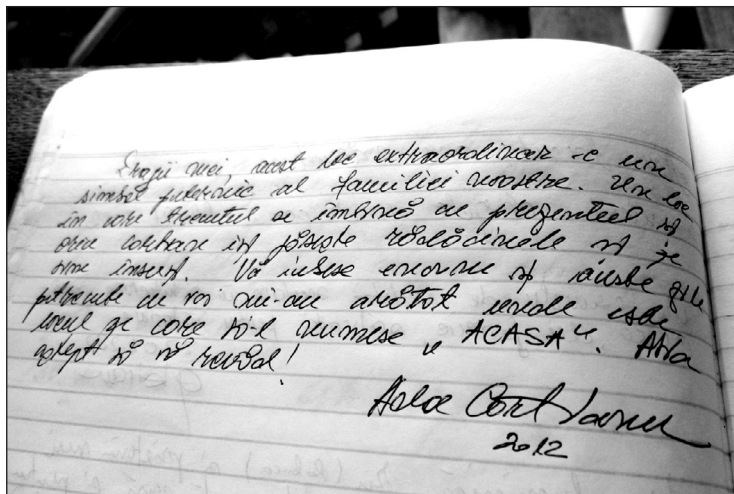 Dragii mei, acest loc extraordinar -e un
simbol puternic al familiei noastre. Un loc
în care trecutul se îmbină cu prezentul și
orice cortean își găsește rădăcinile și pe
sine însuși. Vă iubesc enorm și aceste zile
petrecute cu voi mi-au arătat unde este
locul pe care să-l numesc „ACASA". Abia
aștept să vă revăd!
2012